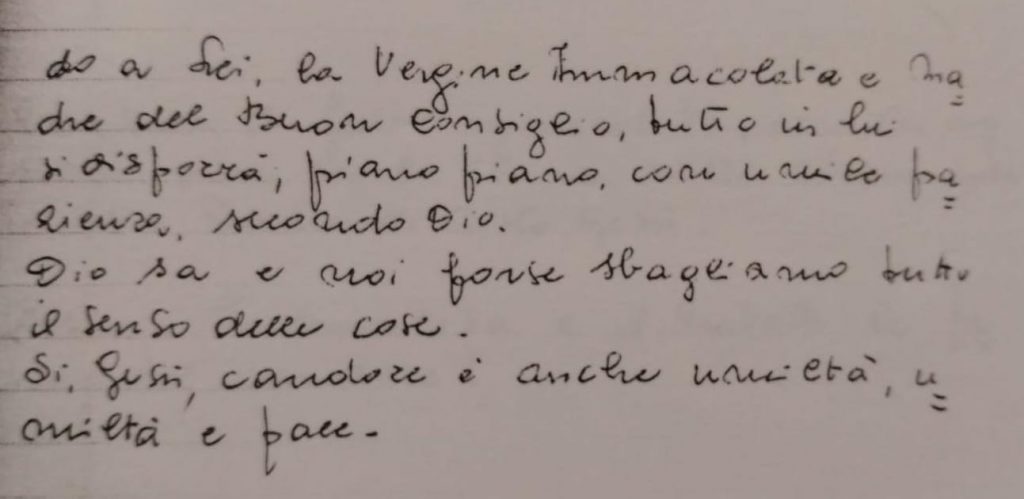 do a Lei, la Vergine Immacolata e Ma=
dre del Buon Consiglio, tutto in lui
si disporrà, piano piano, con umile pa=
zienza, secondo Dio.
Dio sa e noi forse sbagliamo tutto
il senso delle cose.
Sì, Gesù, candore è anche umiltà, u=
miltà e pace.